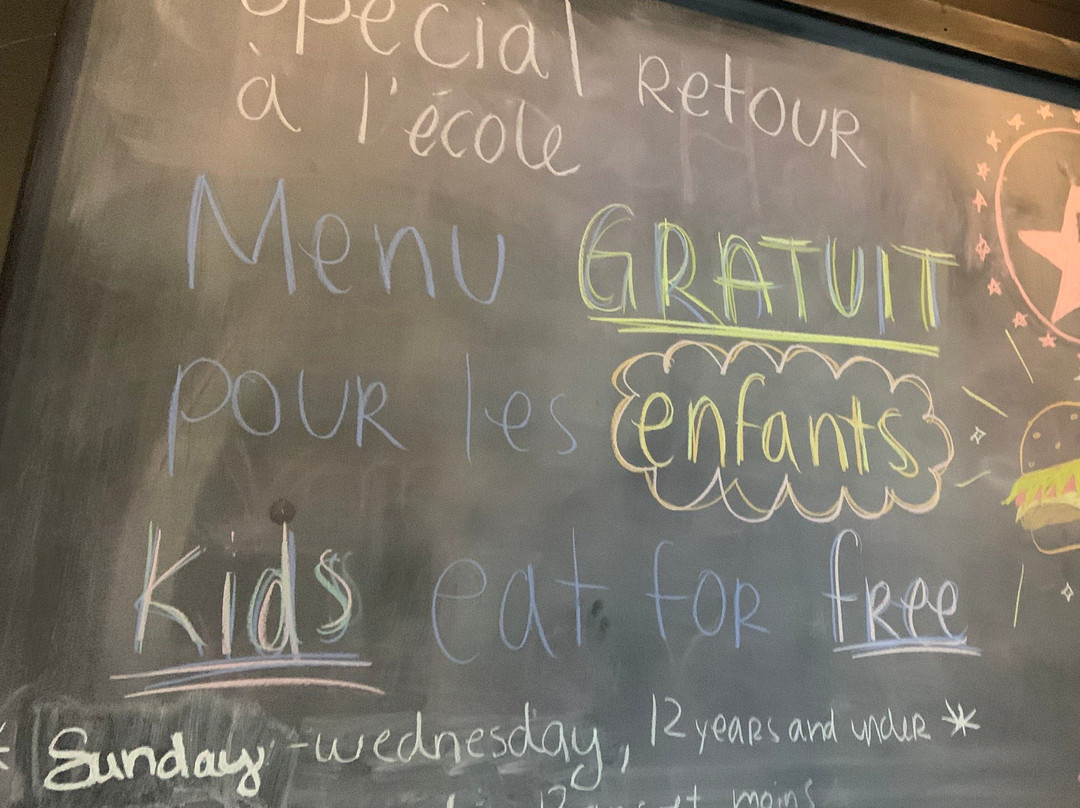 Spécial RETOUR
à l'école
Menu GRATUIT
POUR les enfants
Kids eat for free
* Sunday - wednesday, 12 years and under *
12 ans et moins